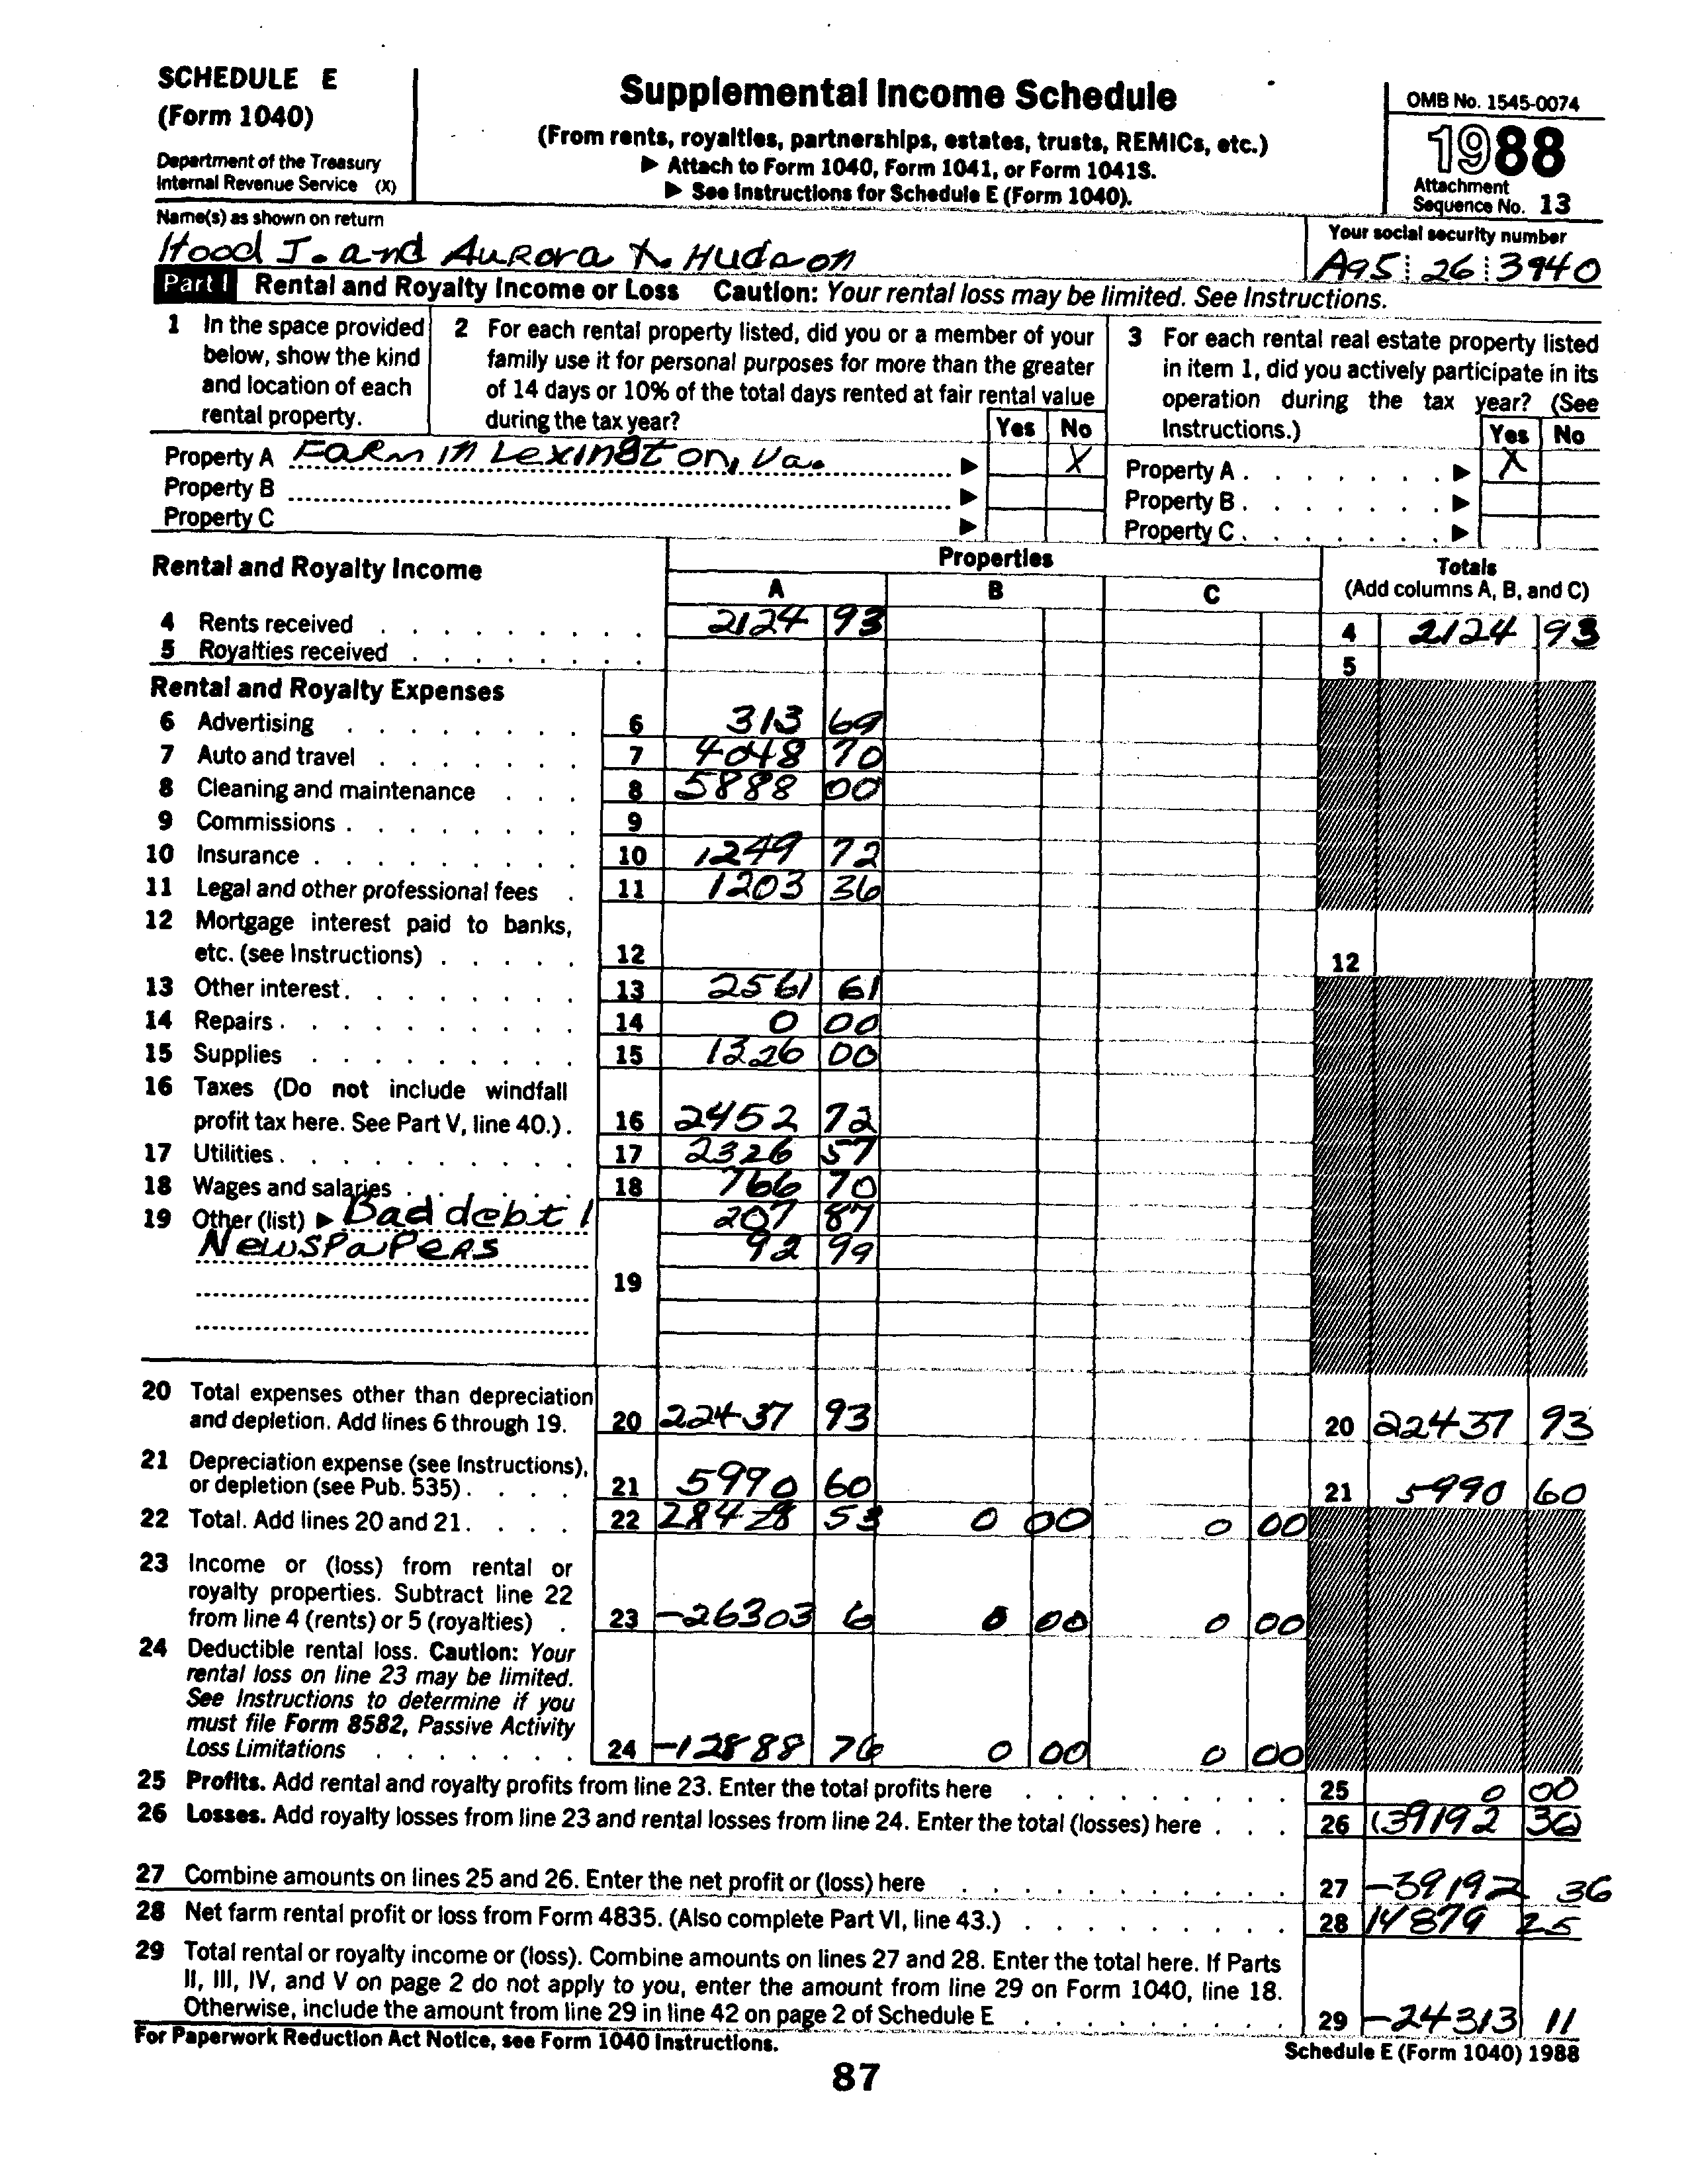 SCHEDULE E
(Form 1040)
Department of the Treasury
Internal Revenue Service (X)
Supplemental Income Schedule
(From rents, royalties, partnerships, estates, trusts, REMICs, etc.)
▶ Attach to Form 1040, Form 1041, or Form 1041S.
▶ See Instructions for Schedule E (Form 1040).
OMB No. 1545-0074
1988
Attachment
Sequence No. 13
Name(s) as shown on return
Hood J. and Aurora X. Hudson
Your social security number
A95 26 3940
Part I Rental and Royalty Income or Loss Caution: Your rental loss may be limited. See Instructions.
1 In the space provided
below, show the kind
and location of each
rental property.
2 For each rental property listed, did you or a member of your
family use it for personal purposes for more than the greater
of 14 days or 10% of the total days rented at fair rental value
during the tax year?
Yes No
3 For each rental real estate property listed
in item 1, did you actively participate in its
operation during the tax year? (See
Instructions.)
Yes No
Property A Farm in Lexington, Va. ▶ X
Property B ▶
Property C ▶
Property A ▶ X
Property B ▶
Property C ▶
Rental and Royalty Income
Properties
A B C
Totals
(Add columns A, B, and C)
4 Rents received 2124 93 4 2124 93
5 Royalties received 5
Rental and Royalty Expenses
6 Advertising 6 313 69
7 Auto and travel 7 4048 70
8 Cleaning and maintenance 8 5888 00
9 Commissions 9
10 Insurance 10 1249 72
11 Legal and other professional fees 11 1203 36
12 Mortgage interest paid to banks,
etc. (see Instructions) 12 12
13 Other interest 13 2561 61
14 Repairs 14 0 00
15 Supplies 15 1326 00
16 Taxes (Do not include windfall
profit tax here. See Part V, line 40.) 16 2452 72
17 Utilities 17 2326 57
18 Wages and salaries 18 766 70
19 Other (list) ▶ Bad debt 1 207 87
Newspapers 92 99
19
20 Total expenses other than depreciation
and depletion. Add lines 6 through 19. 20 22437 93 20 22437 93
21 Depreciation expense (see Instructions),
or depletion (see Pub. 535) 21 5990 60 21 5990 60
22 Total. Add lines 20 and 21 22 28428 53 0 00 0 00
23 Income or (loss) from rental or
royalty properties. Subtract line 22
from line 4 (rents) or 5 (royalties) 23 -26303 6 0 00 0 00
24 Deductible rental loss. Caution: Your
rental loss on line 23 may be limited.
See Instructions to determine if you
must file Form 8582, Passive Activity
Loss Limitations 24 -12888 76 0 00 0 00
25 Profits. Add rental and royalty profits from line 23. Enter the total profits here 25 0 00
26 Losses. Add royalty losses from line 23 and rental losses from line 24. Enter the total (losses) here 26 (39192 36)
27 Combine amounts on lines 25 and 26. Enter the net profit or (loss) here 27 -39192 36
28 Net farm rental profit or loss from Form 4835. (Also complete Part VI, line 43.) 28 14879 25
29 Total rental or royalty income or (loss). Combine amounts on lines 27 and 28. Enter the total here. If Parts
II, III, IV, and V on page 2 do not apply to you, enter the amount from line 29 on Form 1040, line 18.
Otherwise, include the amount from line 29 in line 42 on page 2 of Schedule E 29 -24313 11
For Paperwork Reduction Act Notice, see Form 1040 Instructions.
Schedule E (Form 1040) 1988
87